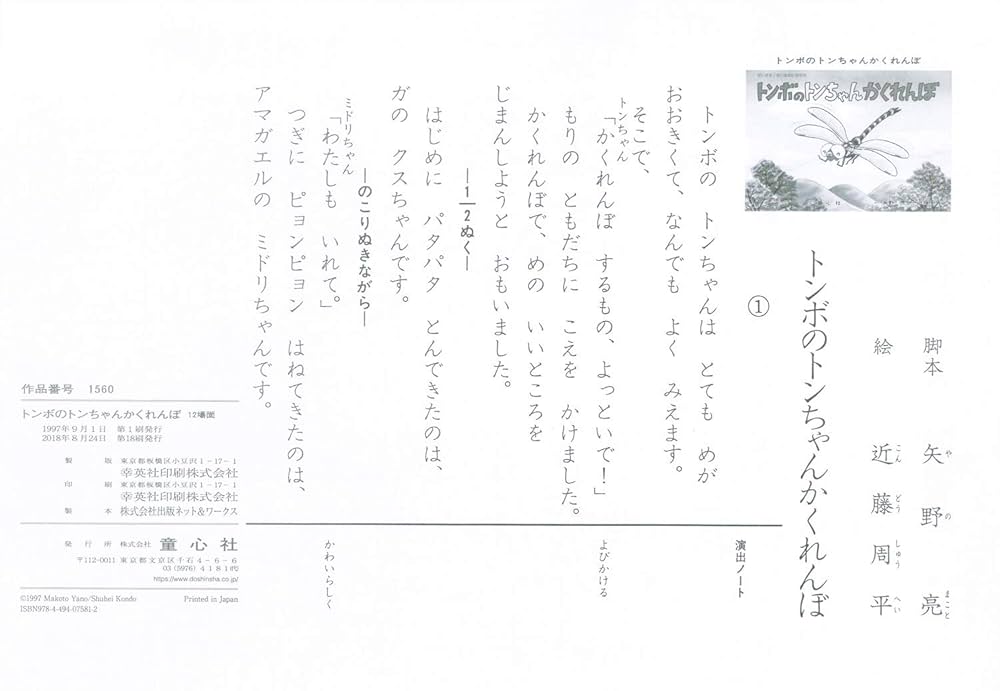 トンボのトンちゃんかくれんぼ
トンボのトンちゃんかくれんぼ
脚本 矢野 亮
や の まこと
絵 近藤周平
こん どう しゅう へい
トンボのトンちゃんかくれんぼ
①
トンボの トンちゃんは とても めが
おおきくて、なんでも よく みえます。
そこで、
トンちゃん
「かくれんぼ するもの、よっといで!」
もりの ともだちに こえを かけました。
かくれんぼで、めの いいところを
じまんしようと おもいました。
―1/2ぬく―
はじめに パタパタ とんできたのは、
ガの クスちゃんです。
―のこりぬきながら―
ミドリちゃん
「わたしも いれて。」
つぎに ピョンピョン はねてきたのは、
アマガエルの ミドリちゃんです。
演出ノート
よびかける
かわいらしく
作品番号 1560
トンボのトンちゃんかくれんぼ 12場面
1997年9月1日 第1刷発行
2018年8月24日 第18刷発行
製版 東京都板橋区小豆沢1-17-1
幸英社印刷株式会社
印刷 東京都板橋区小豆沢1-17-1
幸英社印刷株式会社
製本 株式会社出版ネット&ワークス
発行所 株式会社 童心社
〒112-0011 東京都文京区千石4-6-6
03(5976)4181代
https://www.doshinsha.co.jp/
©1997 Makoto Yano/Shuhei Kondo Printed in Japan
ISBN978-4-494-07581-2